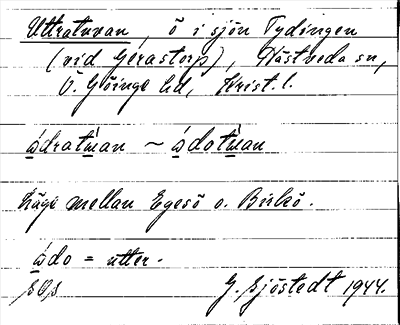 Uttratuvan, ö i sjön Tydingen
(vid Gerastorp), Hästveda sn,
Ö. Göinge hd, Krist. l.
ådratúan ~ ådotúan
Läge mellan Egesö o. Birkö.
ådo = utter.
G. Sjöstedt 1944.